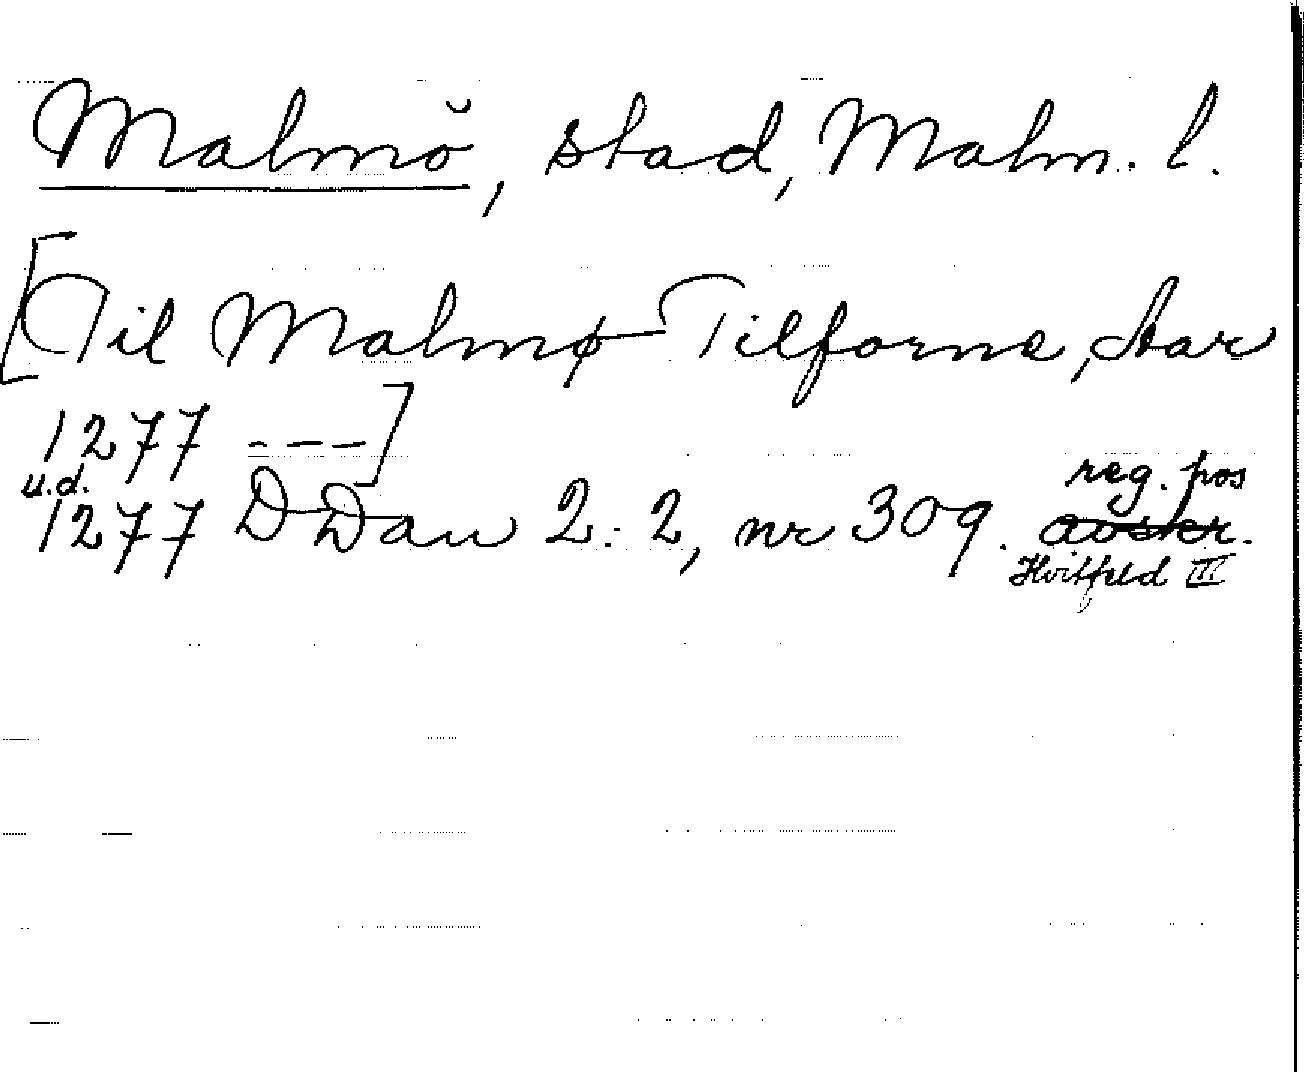 Malmö, stad, Malm. l.
[Til Malmø Tilforne, Aar
1277 - - -]
u.d. reg. pos
1277 DDan 2:2, nr 309. avskr.
Hvitfeld III